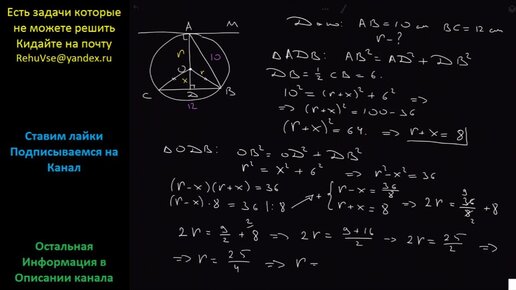 Есть задачи которые
не можете решить
Кидайте на почту
RehuVse@yandex.ru
Ставим лайки
Подписываемся на
Канал
Остальная
Информация в
Описании канала
A M
r
10
O
r
x
C D B
12
Дано: AB=10 см BC=12 см
r-?
ΔADB: AB²=AD²+DB²
DB=½CB=6.
10²=(r+x)²+6² ⇒
⇒ (r+x)²=100-36
(r+x)²=64. ⇒ r+x=8
ΔODB: OB²=OD²+DB²
r²=x²+6² ⇒ r²-x²=36
(r-x)(r+x)=36
(r-x)·8=36 |:8 → + { r-x=36/8
r+x=8 ⇒ 2r=36/8+8
9
2
2r=9/2+8 ⇒ 2r=(9+16)/2 ⇒ 2r=25/2 ⇒
2
⇒ r=25/4 ⇒ r=